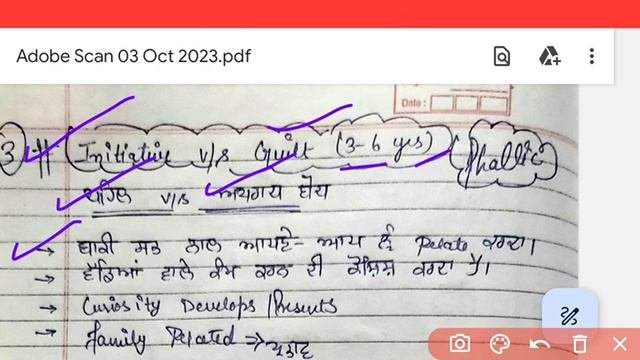 Adobe Scan 03 Oct 2023.pdf
Date:
3 Initiative v/s Guilt (3-6 yrs) (Phallic)
ਪਹਿਲ v/s ਅਪਰਾਧ ਬੋਧ
→ ਬਾਕੀ ਸਭ ਨਾਲ ਆਪਣੇ-ਆਪ ਨੂੰ Relate ਕਰਦਾ।
→ ਵੱਡਿਆਂ ਵਾਲੇ ਕੰਮ ਕਰਨ ਦੀ ਕੋਸ਼ਿਸ਼ ਕਰਦਾ ਹੈ।
→ Curiosity Develops / Presents
→ Family Related ⇒